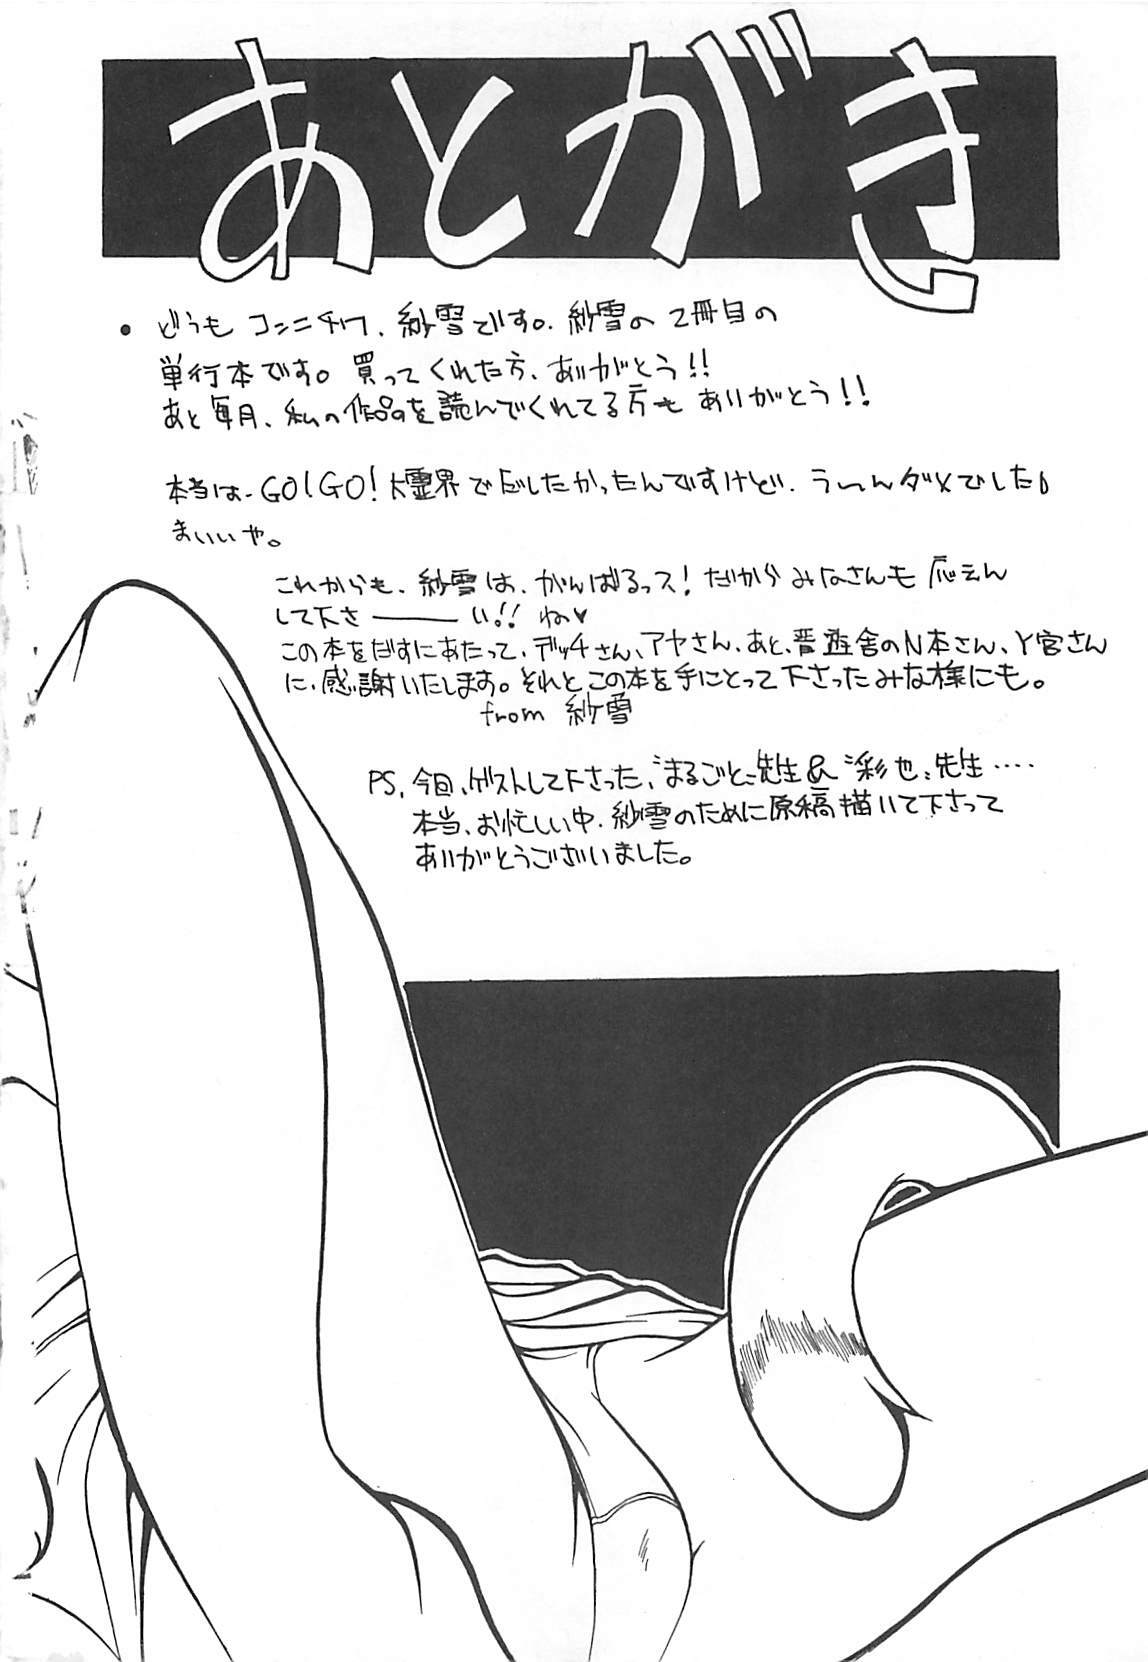 あとがき
• どうもコンニチワ、紗雪です。紗雪の2冊目の
単行本です。買ってくれた方、ありがとう!!
あと毎月、私の作品を読んでくれてる方もありがとう!!
本当は、GO!GO!大霊界でだしたかったんですけど、うーんダメでした
まいいや。
これからも、紗雪は、がんばるっス!だからみなさんも応えん
して下さ―――い!! ね♥
この本をだすにあたって、デッチさん、アヤさん、あと、晋遊舎のN本さん、Y宮さん
に、感謝いたします。それとこの本を手にとって下さったみな様にも。
from 紗雪
PS、今回、ゲストして下さった、"まるごと"先生&"彩也"先生‥‥
本当、お忙しい中、紗雪のために原稿描いて下さって
ありがとうございました。